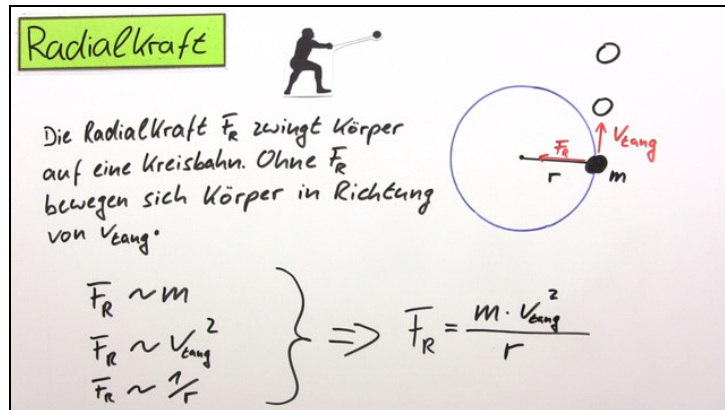 Radialkraft
Die Radialkraft F_R zwingt Körper
auf eine Kreisbahn. Ohne F_R
bewegen sich Körper in Richtung
von v_tang.
F_R
v_tang
r
m
F_R ~ m
F_R ~ v_tang²
F_R ~ 1/r
} => F_R = m · v_tang² / r